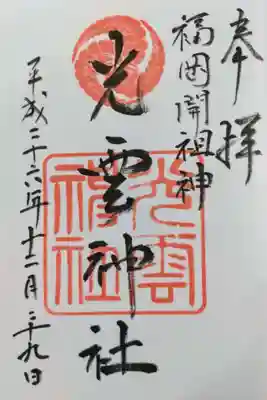 奉拝
福岡開祖神
光雲神社
光雲神社
平成二十六年十二月二十九日